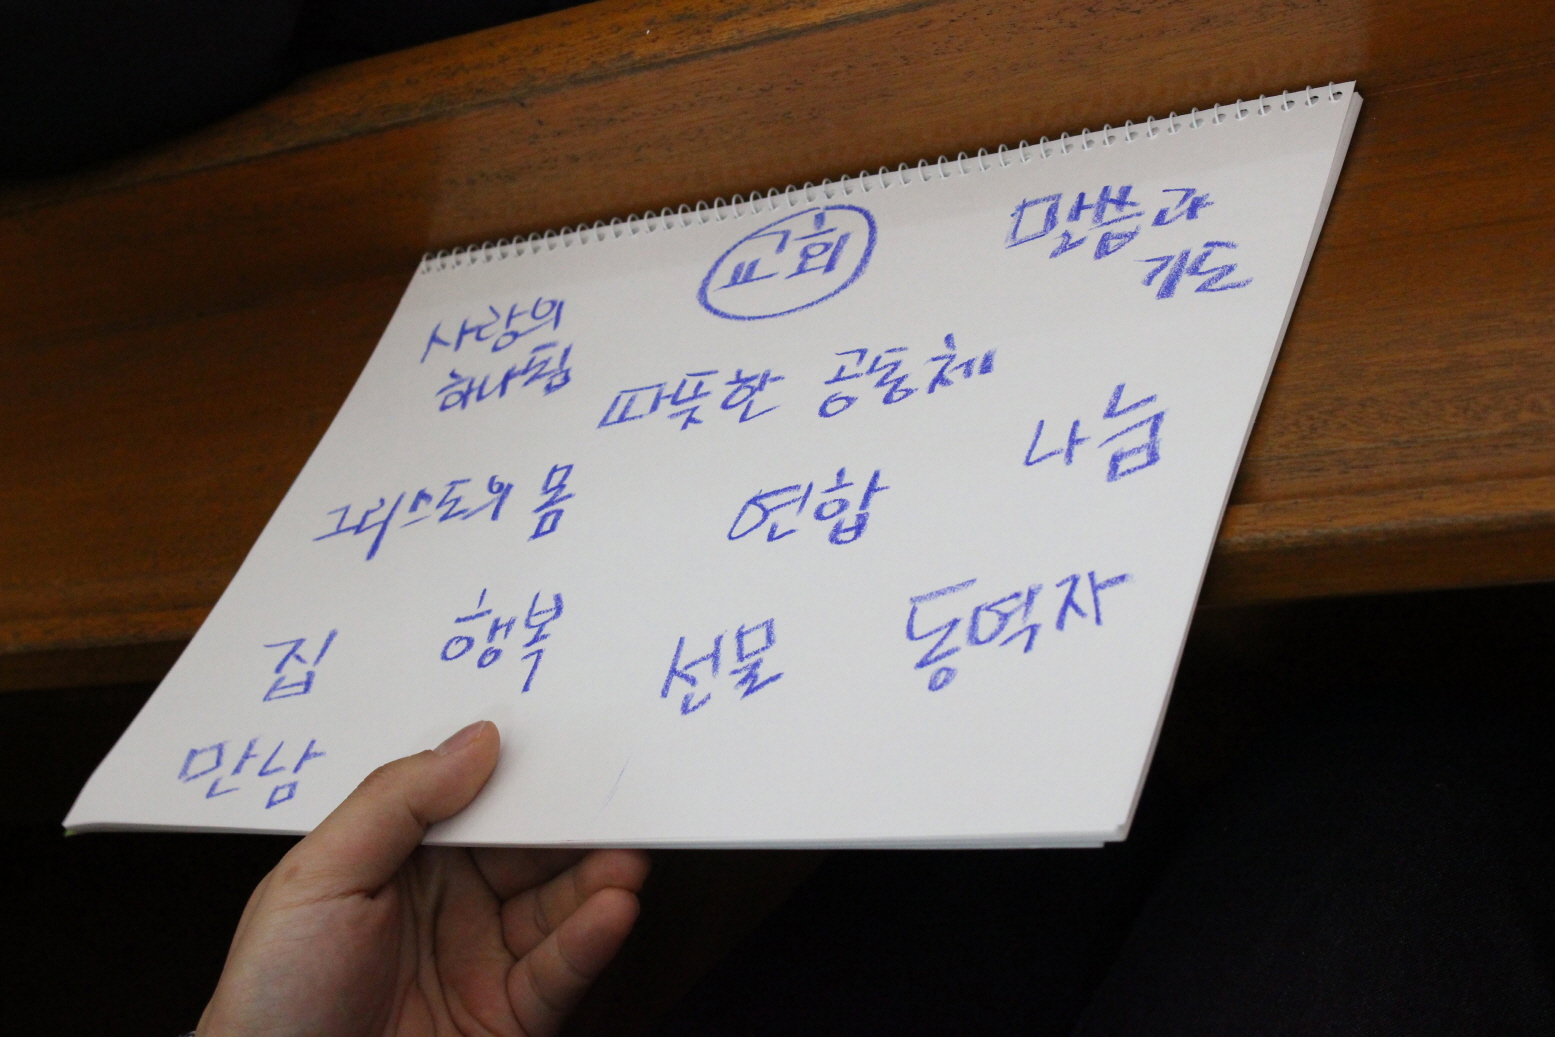 교회
말씀과
기도
사랑의
하나됨
따뜻한 공동체
나눔
그리스도의 몸
연합
집
행복
선물
동역자
만남